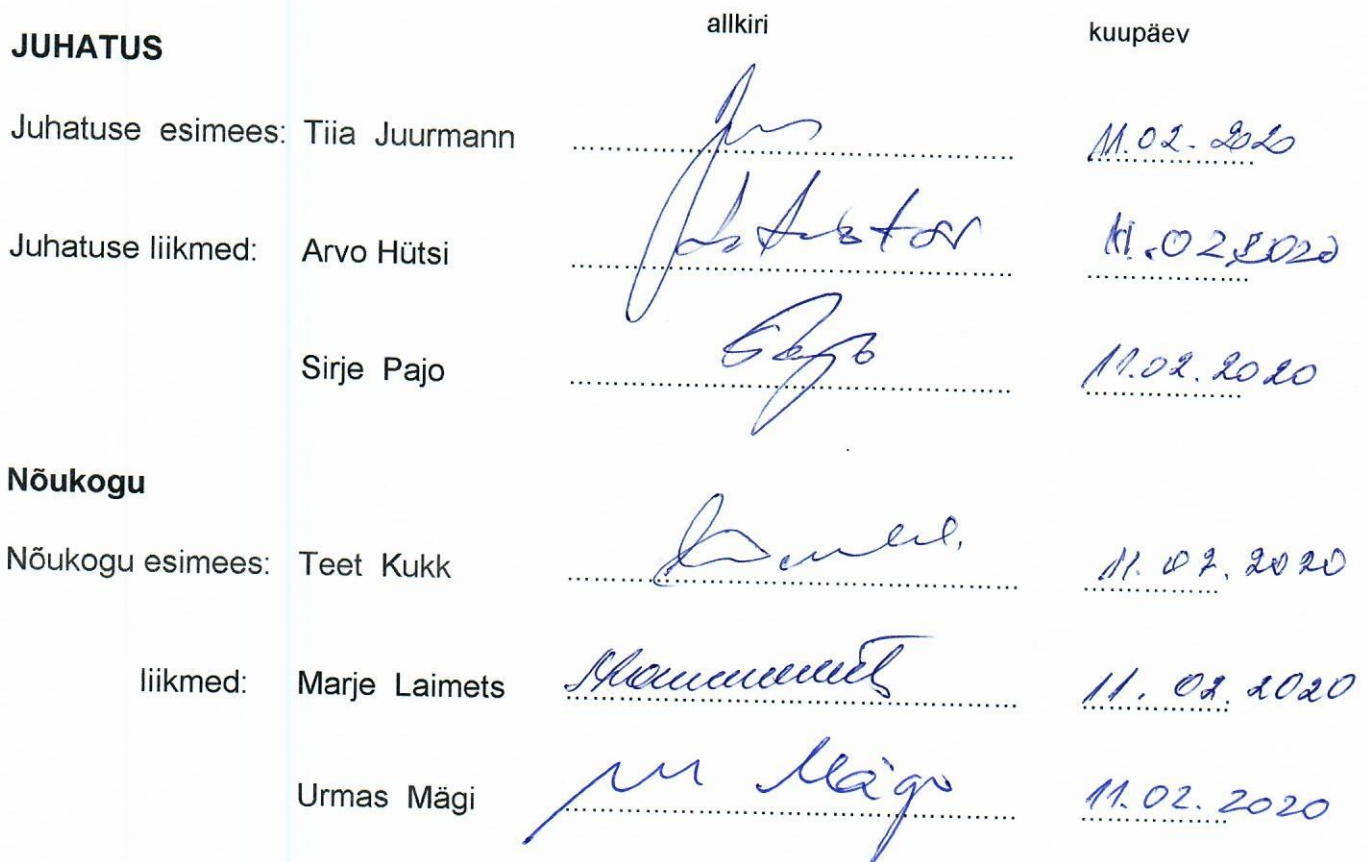 allkiri kuupäev
JUHATUS
Juhatuse esimees: Tiia Juurmann 11.02.2020
Juhatuse liikmed: Arvo Hütsi 11.02.2020
Sirje Pajo SPajo 11.02.2020
Nõukogu
Nõukogu esimees: Teet Kukk 11.02.2020
liikmed: Marje Laimets 11.02.2020
Urmas Mägi Mägi 11.02.2020